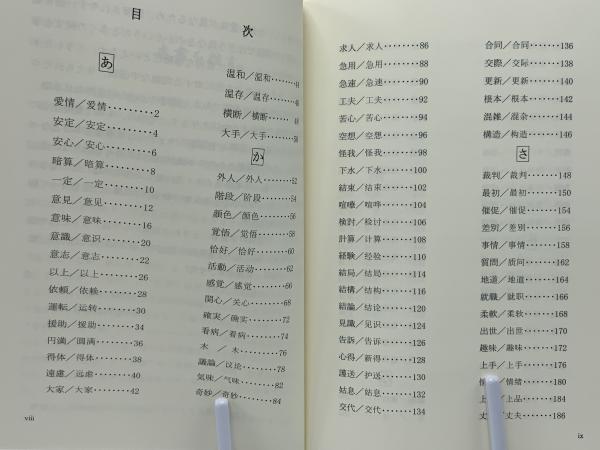 目 次
あ
愛情／爱情………2
安定／安定………4
安心／安心………6
暗算／暗算………8
一定／一定………10
意見／意见………12
意味／意味………16
意識／意识………20
意志／意志………22
以上／以上………26
依頼／依赖………28
運転／运转………30
援助／援助………34
円満／圆满………36
得体／得体………38
遠慮／远虑………40
大家／大家………42
viii
温和／温和………
温存／温存………
横断／横断………
大手／大手………50
か
外人／外人………52
階段／阶段………54
顔色／颜色………56
覚悟／觉悟………58
恰好／恰好………60
活動／活动………62
感覚／感觉………66
関心／关心………68
確実／确实………72
看病／看病………74
木／木………76
議論／议论………78
気味／气味………82
奇妙／奇妙………84
求人／求人………86
急用／急用………88
急速／急速………90
工夫／工夫………92
苦心／苦心………94
空想／空想………96
怪我／怪我………98
下水／下水………100
結束／结束………102
喧嘩／喧哗………104
検討／检讨………106
計算／计算………108
経験／经验………110
結局／结局………114
結構／结构………116
結論／结论………120
見識／见识………124
告訴／告诉………126
心得／心得………128
護送／护送………130
姑息／姑息………132
交代／交代………134
合同／合同………136
交際／交际………138
更新／更新………140
根本／根本………142
混雑／混杂………144
構造／构造………146
さ
裁判／裁判………148
最初／最初………150
催促／催促………154
差別／差别………156
事情／事情………158
質問／质问………162
地道／地道………164
就職／就职………166
柔軟／柔软………168
出世／出世………170
趣味／趣味………172
上手／上手………176
情／情绪………180
上／上品………184
丈／丈夫………186
ix